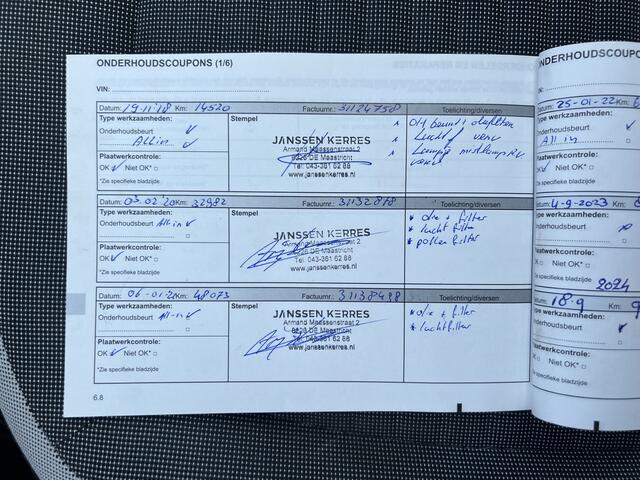 ONDERHOUDSCOUPONS (1/6)
VIN:
Datum: 19-11-18 Km: 14520 Factuurnr.: 31124758 Toelichting/diversen
Type werkzaamheden: Stempel
Onderhoudsbeurt
All in
JANSSEN KERRES
Armand Maassenstraat 2
6228 DE Maastricht
Tel: 043-361 62 88
www.janssenkerres.nl
Plaatwerkcontrole:
OK Niet OK*
*Zie specifieke bladzijde
Datum: 03-02-20 Km: 32982 Factuurnr.: 31132878 Toelichting/diversen
Type werkzaamheden: Stempel
Onderhoudsbeurt All-in
JANSSEN KERRES
Armand Maassenstraat 2
6228 DE Maastricht
Tel: 043-361 62 88
www.janssenkerres.nl
* olie + filter
* lucht filter
* pollen filter
Plaatwerkcontrole:
OK Niet OK*
*Zie specifieke bladzijde
Datum: 06-01-21 Km: 48073 Factuurnr.: 31138498 Toelichting/diversen
Type werkzaamheden: Stempel
Onderhoudsbeurt All-in
JANSSEN KERRES
Armand Maassenstraat 2
6228 DE Maastricht
Tel: 043-361 62 88
www.janssenkerres.nl
* olie + filter
* luchtfilter
Plaatwerkcontrole:
OK Niet OK*
*Zie specifieke bladzijde
6.8
ONDERHOUDSCOUPONS
VIN:
Datum: 25-01-22 Km:
Type werkzaamheden:
Onderhoudsbeurt
All in
Plaatwerkcontrole:
OK Niet OK*
*Zie specifieke bladzijde
4-9-2023 Km:
Type werkzaamheden:
Onderhoudsbeurt
Plaatwerkcontrole:
OK Niet OK*
specifieke bladzijde
2024
Datum: 18-9 Km:
Type werkzaamheden:
Onderhoudsbeurt
Plaatwerkcontrole:
OK Niet OK*
*Zie specifieke bladzijde